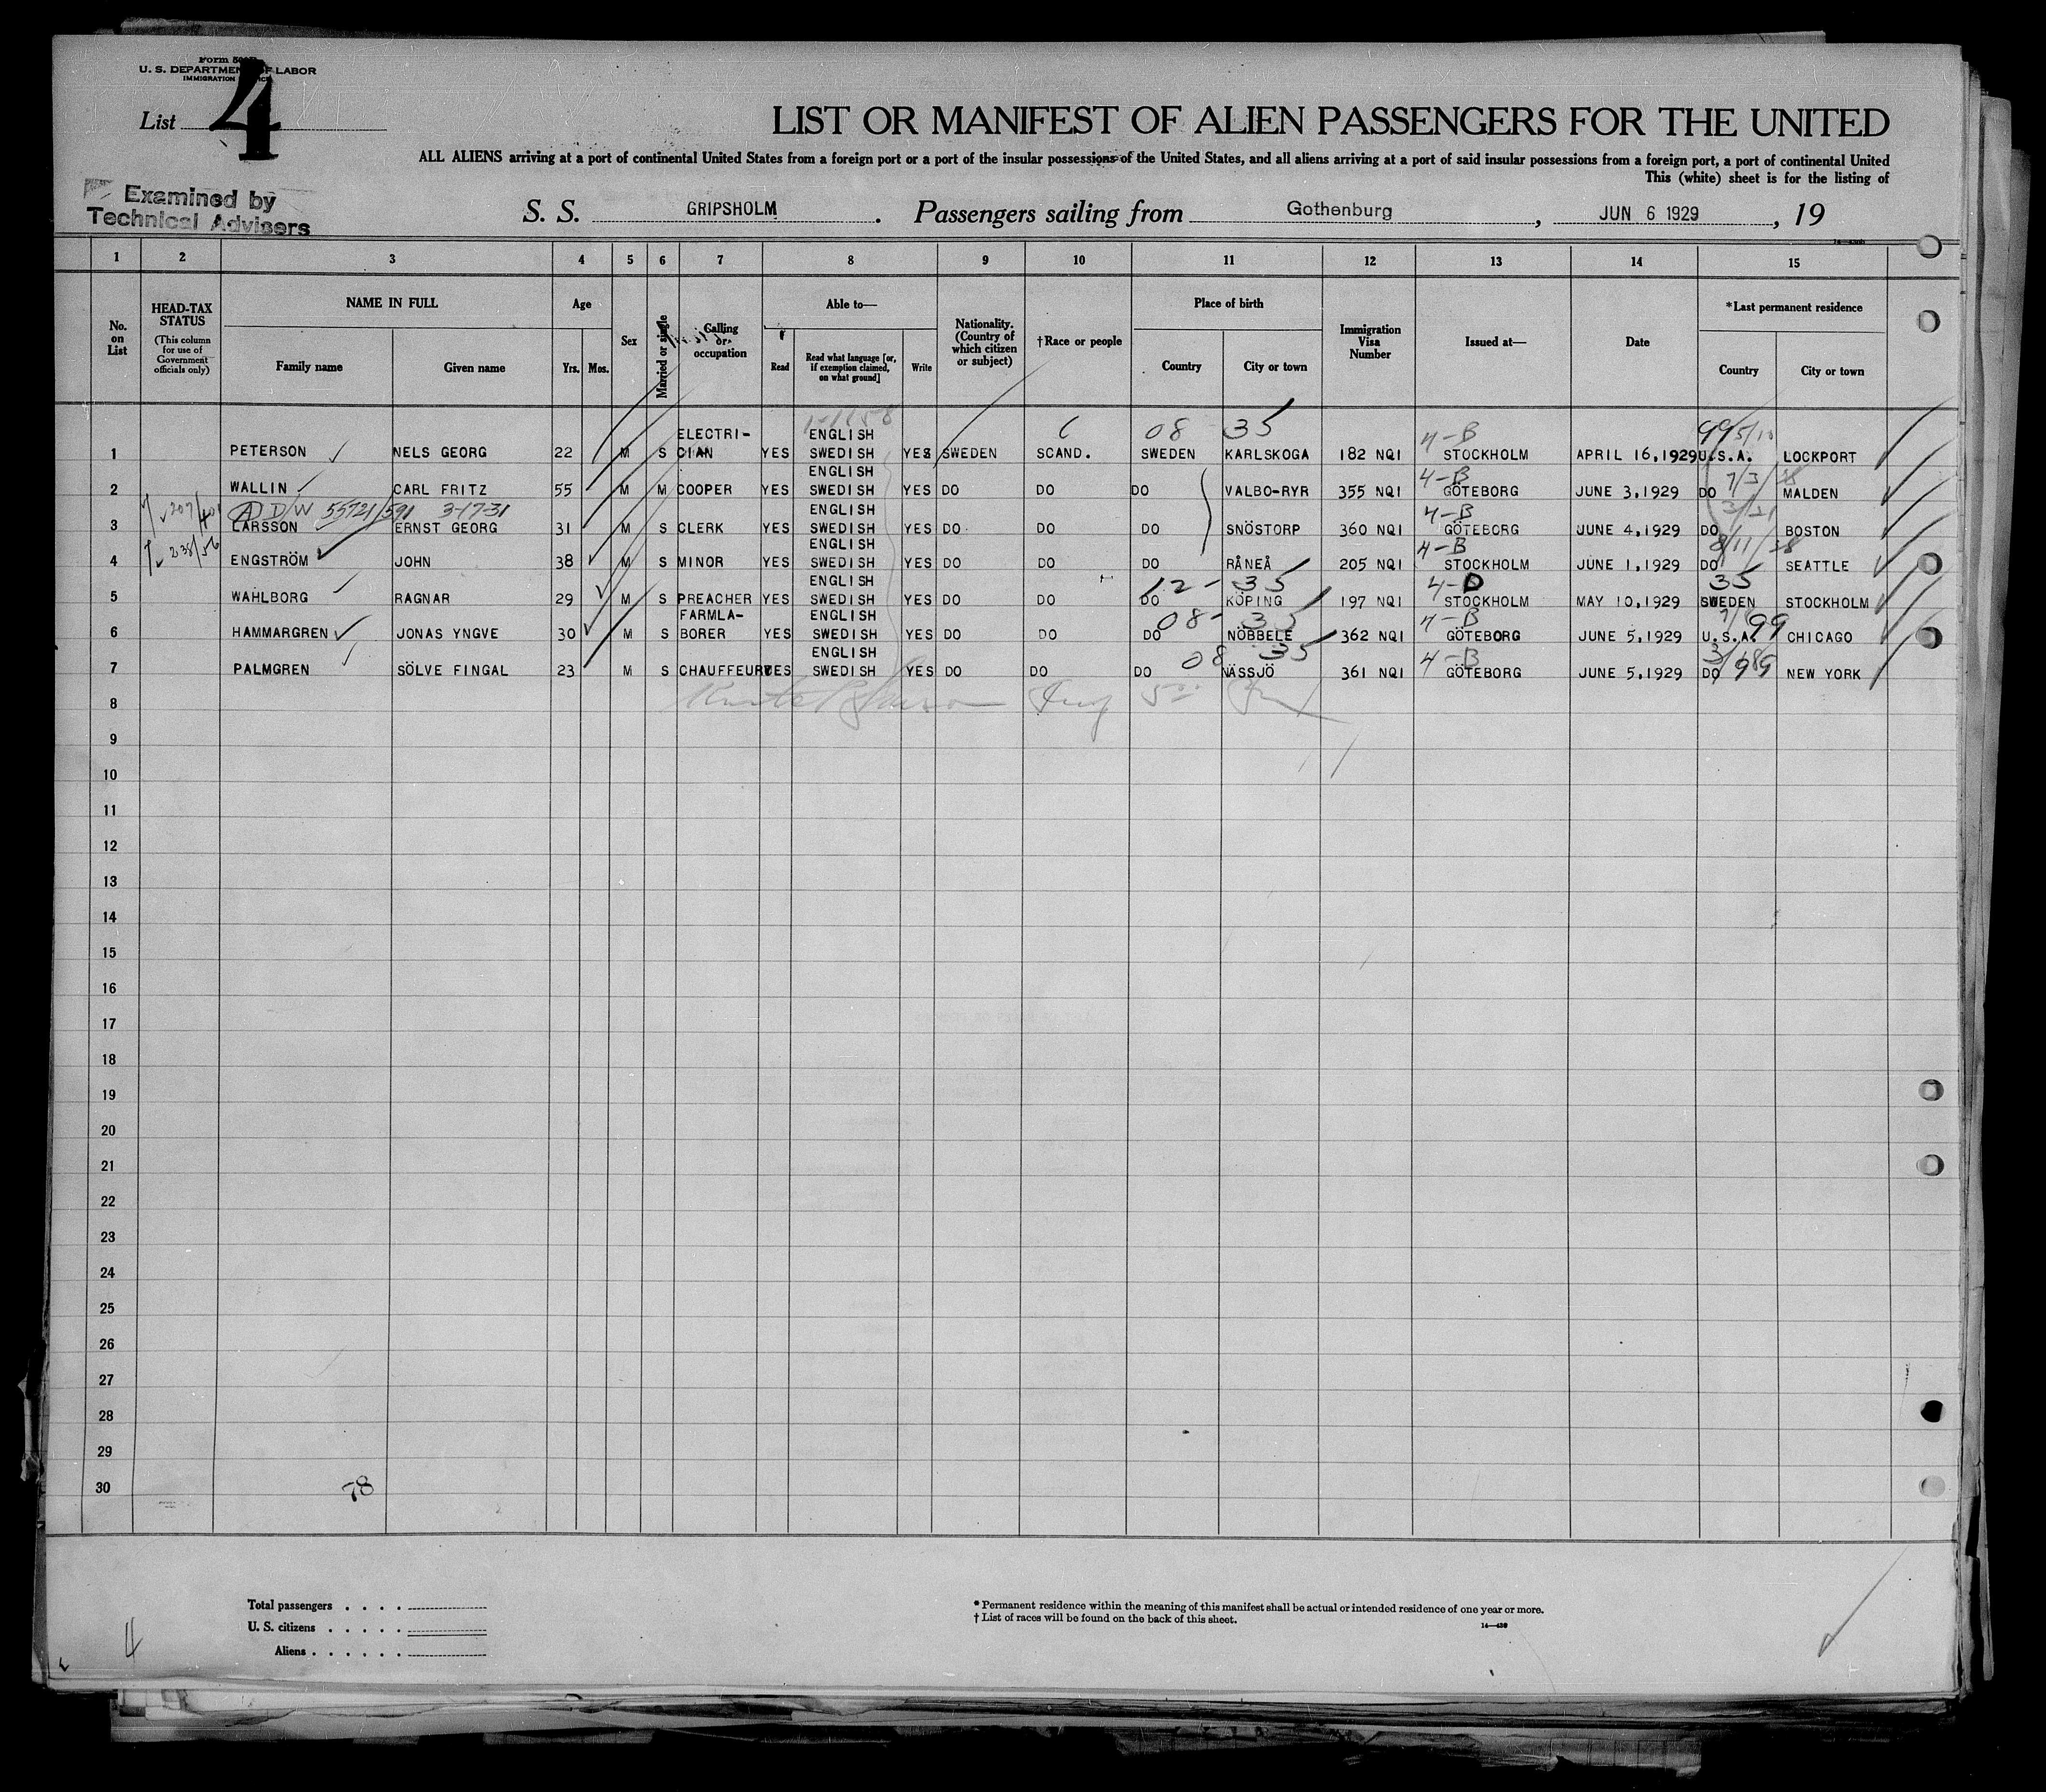 U. S. DEPARTMENT OF LABOR
IMMIGRATION
List 4
LIST OR MANIFEST OF ALIEN PASSENGERS FOR THE UNITED
ALL ALIENS arriving at a port of continental United States from a foreign port or a port of the insular possessions of the United States, and all aliens arriving at a port of said insular possessions from a foreign port, a port of continental United
This (white) sheet is for the listing of
Examined by
Technical Advisers
S. S. GRIPSHOLM . Passengers sailing from Gothenburg , JUN 6 1929 , 19
1 2 3 4 5 6 7 8 9 10 11 12 13 14 15
No. on List
HEAD-TAX STATUS (This column for use of Government officials only)
NAME IN FULL Family name Given name
Age Yrs. Mos.
Sex
Married or single
Calling or occupation
Able to— Read Read what language [or, if exemption claimed, on what ground] Write
Nationality. (Country of which citizen or subject)
†Race or people
Place of birth Country City or town
Immigration Visa Number
Issued at—
Date
*Last permanent residence Country City or town
08 35 4-B 99 5/10
1 PETERSON NELS GEORG 22 M S ELECTRI-CIAN YES ENGLISH SWEDISH YES SWEDEN SCAND. SWEDEN KARLSKOGA 182 NQI STOCKHOLM APRIL 16,1929 U.S.A. LOCKPORT
4-B
2 WALLIN CARL FRITZ 55 M M COOPER YES ENGLISH SWEDISH YES DO DO DO VALBO-RYR 355 NQI GÖTEBORG JUNE 3,1929 DO MALDEN
A D/W 55721/591 3-17-31 4-B
3 LARSSON ERNST GEORG 31 M S CLERK YES ENGLISH SWEDISH YES DO DO DO SNÖSTORP 360 NQI GÖTEBORG JUNE 4,1929 DO BOSTON
238/56 4-B
4 ENGSTRÖM JOHN 38 M S MINOR YES ENGLISH SWEDISH YES DO DO DO RÅNEÅ 205 NQI STOCKHOLM JUNE 1,1929 DO SEATTLE
12-35 4-D 35
5 WAHLBORG RAGNAR 29 M S PREACHER YES ENGLISH SWEDISH YES DO DO DO KÖPING 197 NQI STOCKHOLM MAY 10,1929 SWEDEN STOCKHOLM
08-35 4-B 99
6 HAMMARGREN JONAS YNGVE 30 M S FARMLA-BORER YES ENGLISH SWEDISH YES DO DO DO NÖBBELE 362 NQI GÖTEBORG JUNE 5,1929 U.S.A. CHICAGO
08 35 4-B 99
7 PALMGREN SÖLVE FINGAL 23 M S CHAUFFEUR YES ENGLISH SWEDISH YES DO DO DO NÄSSJÖ 361 NQI GÖTEBORG JUNE 5,1929 DO NEW YORK
8
9
10
11
12
13
14
15
16
17
18
19
20
21
22
23
24
25
26
27
28
29
30
78
Total passengers
U. S. citizens
Aliens
* Permanent residence within the meaning of this manifest shall be actual or intended residence of one year or more.
† List of races will be found on the back of this sheet.